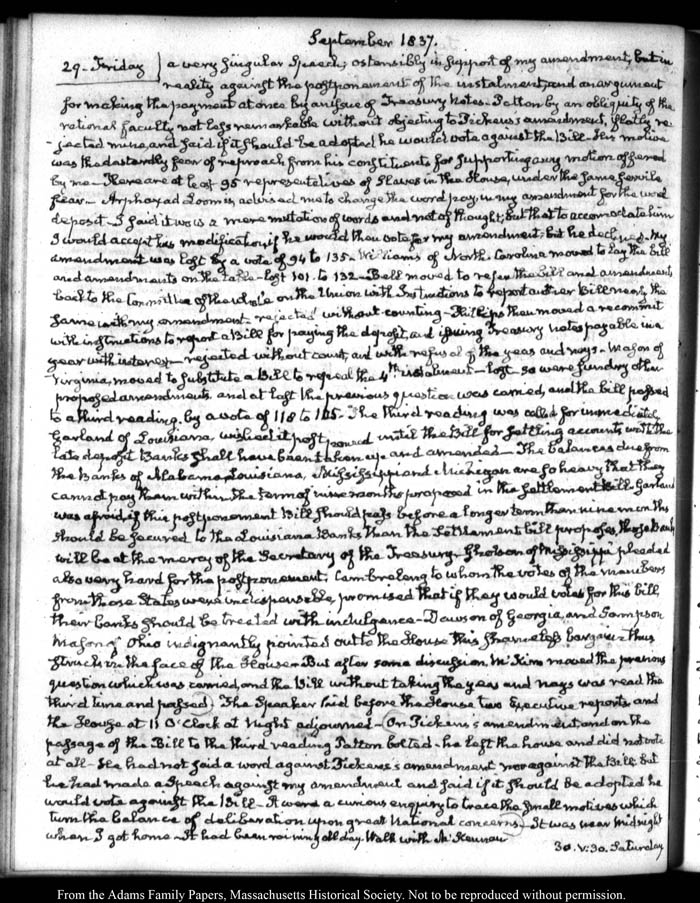 September 1837.
29. Friday } a very singular Speech; ostensibly in support of my amendment, but in
reality against the postponement of the instalment, and an argument
for making the payment at once by an issue of Treasury Notes. Patton by an obliquity of the
rational faculty not less remarkable without objecting to Pickens's amendment, flatly re-
jected mine, and said if it should be adopted he would vote against the Bill. His motive
was the dastardly fear of reproach from his constituents for supporting any motion offered
by me. There are at least 95 representatives of Slaves in the House, under the same servile
fear. Arphaxad Loomis advised me to change the word pay, in my amendment for the word
deposit. I said it was a mere mutation of words and not of thought; but that to accommodate him
I would accept his modification, if he would then vote for my amendment, but he declined. My
amendment was lost by a vote of 94 to 135. Williams of North Carolina moved to lay the bill
and amendments on the table. lost 101. to 132. Bell moved to refer the bill and amendments
back to the Committee of the whole on the Union with Instructions to report another Bill nearly the
same with my amendment. rejected without counting. Phillips then moved a recommit
with instructions to report a Bill for paying the deposit, and issuing Treasury notes payable in a
year with interest. rejected without count, and with refusal of the yeas and nays. Mason of
Virginia, moved to substitute a Bill to repeal the 4th instalment. lost. so were sundry other
proposed amendments and at last the previous question was carried, and the bill passed
to a third reading, by a vote of 118 to 105. The third reading was called for immediately
Garland of Louisiana, wished it postponed until the Bill for settling accounts with the
late deposit Banks shall have been taken up and amended. The balances due from
the Banks of Alabama, Louisiana, Mississippi and Michigan are so heavy that they
cannot pay them within the term of nine months proposed in the settlement Bill. Garland
was afraid, if this postponement Bill should pass before a longer term than nine months
should be secured to the Louisiana Banks than the settlement bill proposes, those Banks
will be at the mercy of the Secretary of the Treasury. Gholson of Mississippi pleaded
also very hard for the postponement. Cambreleng to whom the votes of the members
from those States were indispensable, promised that if they would vote for this bill,
their banks should be treated with indulgence. Dawson of Georgia, and Sampson
Mason of Ohio indignantly pointed out to the House this shameless bargain thus
struck in the face of the House. But after some discussion, McKim moved the previous
question which was carried, and the Bill without taking the yeas and nays was read the
third time and passed. The Speaker laid before the House two Executive reports, and
the House at 11 O'Clock at Night adjourned. (On Pickens's amendment and on the
passage of the Bill to the third reading Patton bolted. he left the house and did not vote
at all. He had not said a word against Pickens's amendment nor against the Bill. but
he had made a Speech against my amendment and said if it should be adopted he
would vote against the Bill. It were a curious enquiry to trace the small motives which
turn the balance of deliberation upon great National concerns.) It was near midnight
when I got home. It had been raining all day. Walk with Mr
30. V:30. Saturday
From the Adams Family Papers, Massachusetts Historical Society. Not to be reproduced without permission.